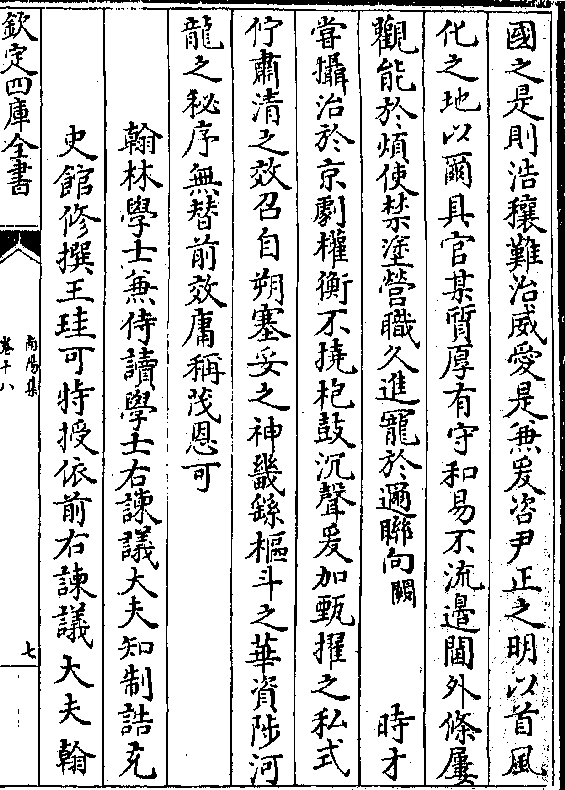 國之是則浩穰難治威愛是兼爰咨尹正之明以首風
化之地以爾具官某質厚有守和易不流邉閫外條屢
觀能於煩使禁塗營職久進寵於邇聯向闕 時才
甞攝治於京劇權衡不撓枹鼓沉聲爰加甄擢之私式
佇肅清之效召自朔塞妥之神畿繇樞斗之華資陟河
龍之秘序無替前效庸稱茂恩可
翰林學士兼侍讀學士右諫議大夫知制誥充
史館修撰王珪可特授依前右諫議大夫翰
欽定四庫全書
南陽集
卷十八
七